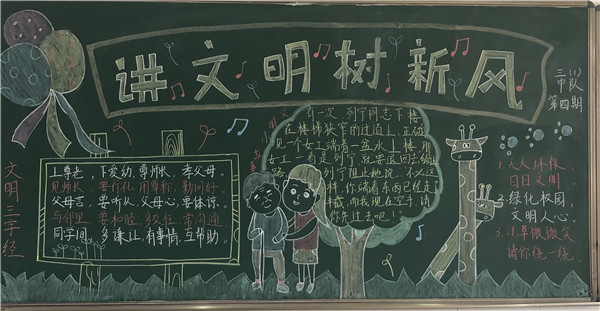 讲文明树新风
三(1)
中队
第四期
文明三字经
上尊老，下爱幼，尊师长，孝父母。
见师长，要行礼，用尊称，勤问好。
父母言，要听从，父母心，要体谅。
与邻里，要和睦，多往
同学间，多谦让，有事情，互帮助。
有一次，列宁同志下楼，
在楼梯狭窄的过道上，正碰
见一个女工端着一盆水上楼。那
女工一看是列宁，就要退回去给
路。列宁阻止她说：不必这
样，你端着东西已经走了
半截，而我现在空手，请
你先过去吧！
1.人人环保，
日日文明。
2.绿化校园，
文明人心。
3.小草微微笑，
请你绕一绕。